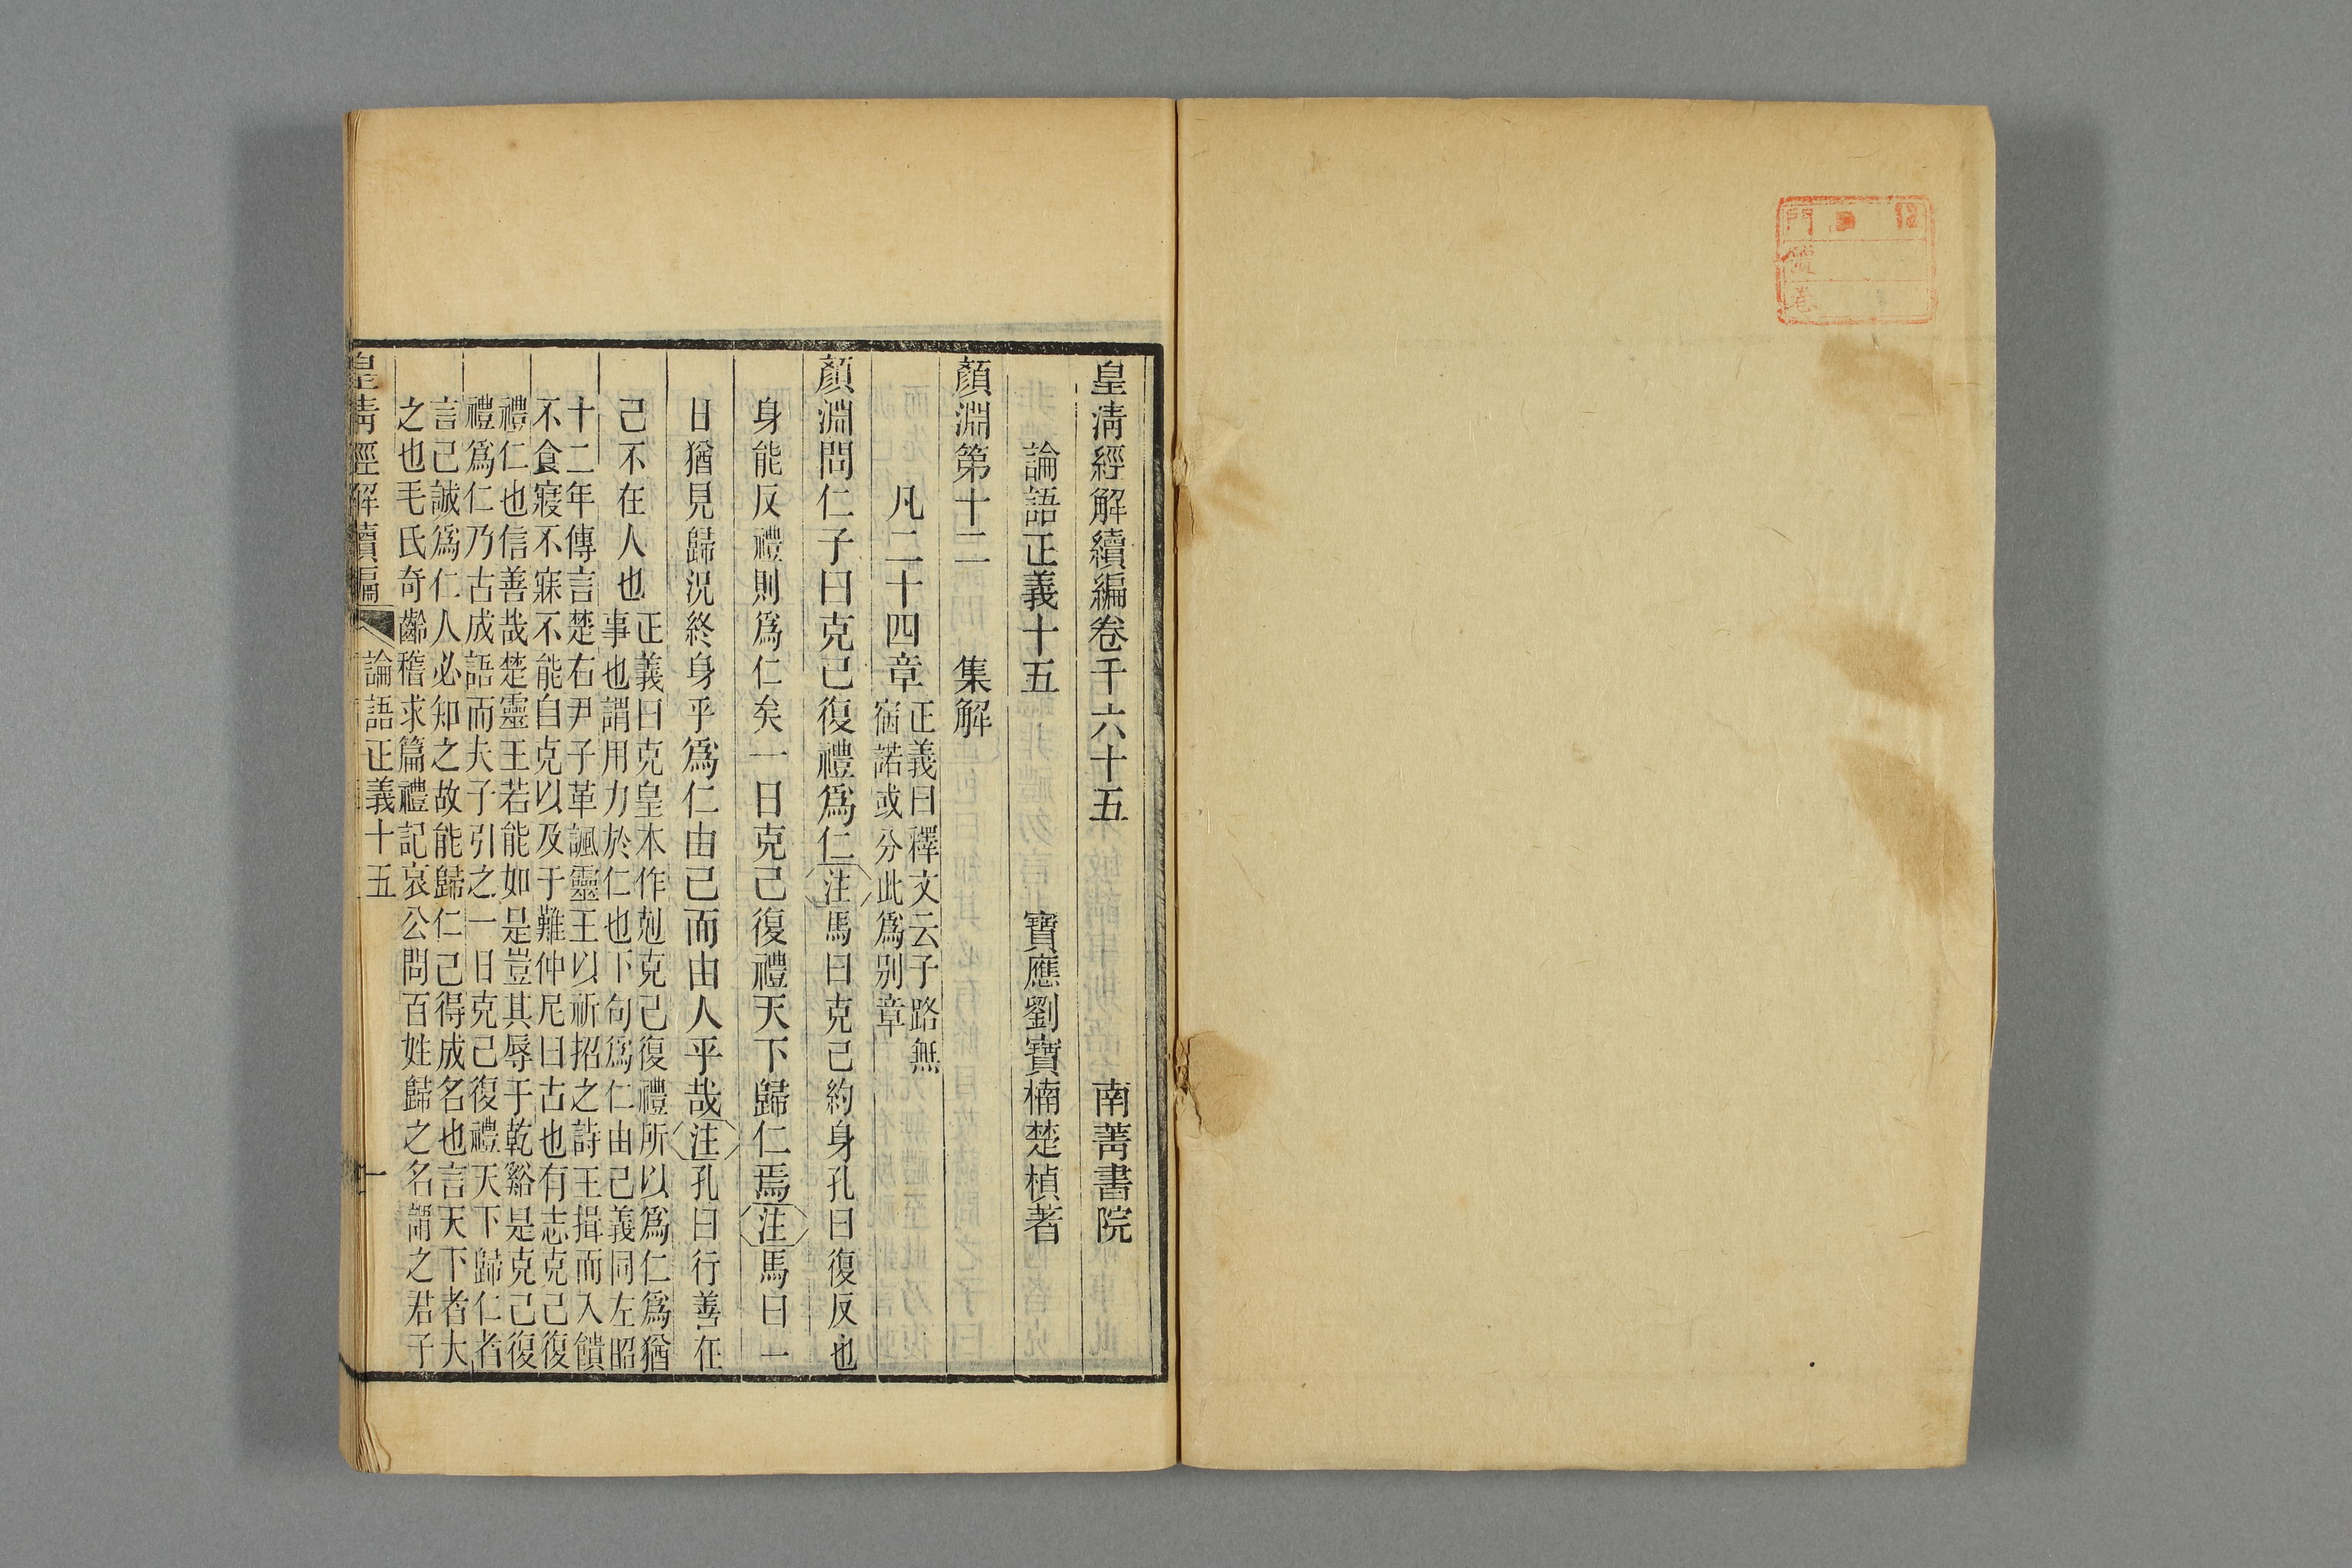 皇淸經解續編卷千六十五 南菁書院
論語正義十五 寶應劉寶楠楚楨著
顏淵第十二 集解
凡二十四章
正義曰釋文云子路無
宿諾或分此爲別章
顏淵問仁子曰克己復禮爲仁注馬曰克己約身孔曰復反也
身能反禮則爲仁矣一日克己復禮天下歸仁焉注馬曰一
日猶見歸況終身乎爲仁由己而由人乎哉注孔曰行善在
己不在人也
正義曰克皇本作剋克己復禮所以爲仁爲猶
事也謂用力於仁也下句爲仁由己義同左昭
十二年傳言楚右尹子革諷靈王以祈招之詩王揖而入饋
不食寢不寐不能自克以及于難仲尼曰古也有志克己復
禮仁也信善哉楚靈王若能如是豈其辱于乾谿是克己復
禮爲仁乃古成語而夫子引之一日克己復禮天下歸仁者
言己誠爲仁人必知之故能歸仁己得成名也言天下者大
之也毛氏奇齡稽求篇禮記哀公問百姓歸之名謂之君子
皇淸經解續編 論語正義十五 一
門
號
卷